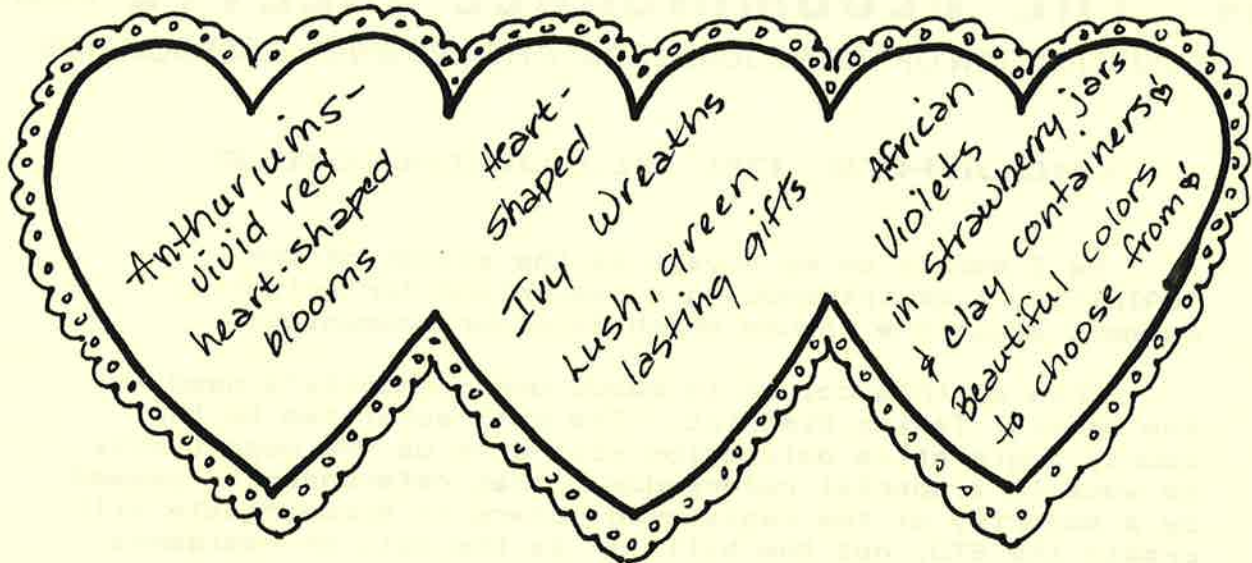 Anthuriums-
vivid red
heart-shaped
blooms
Heart-
Shaped
Ivy Wreaths
Lush, green
lasting gifts
African
Violets
in strawberry jars
& clay containers!
Beautiful colors
to choose from!